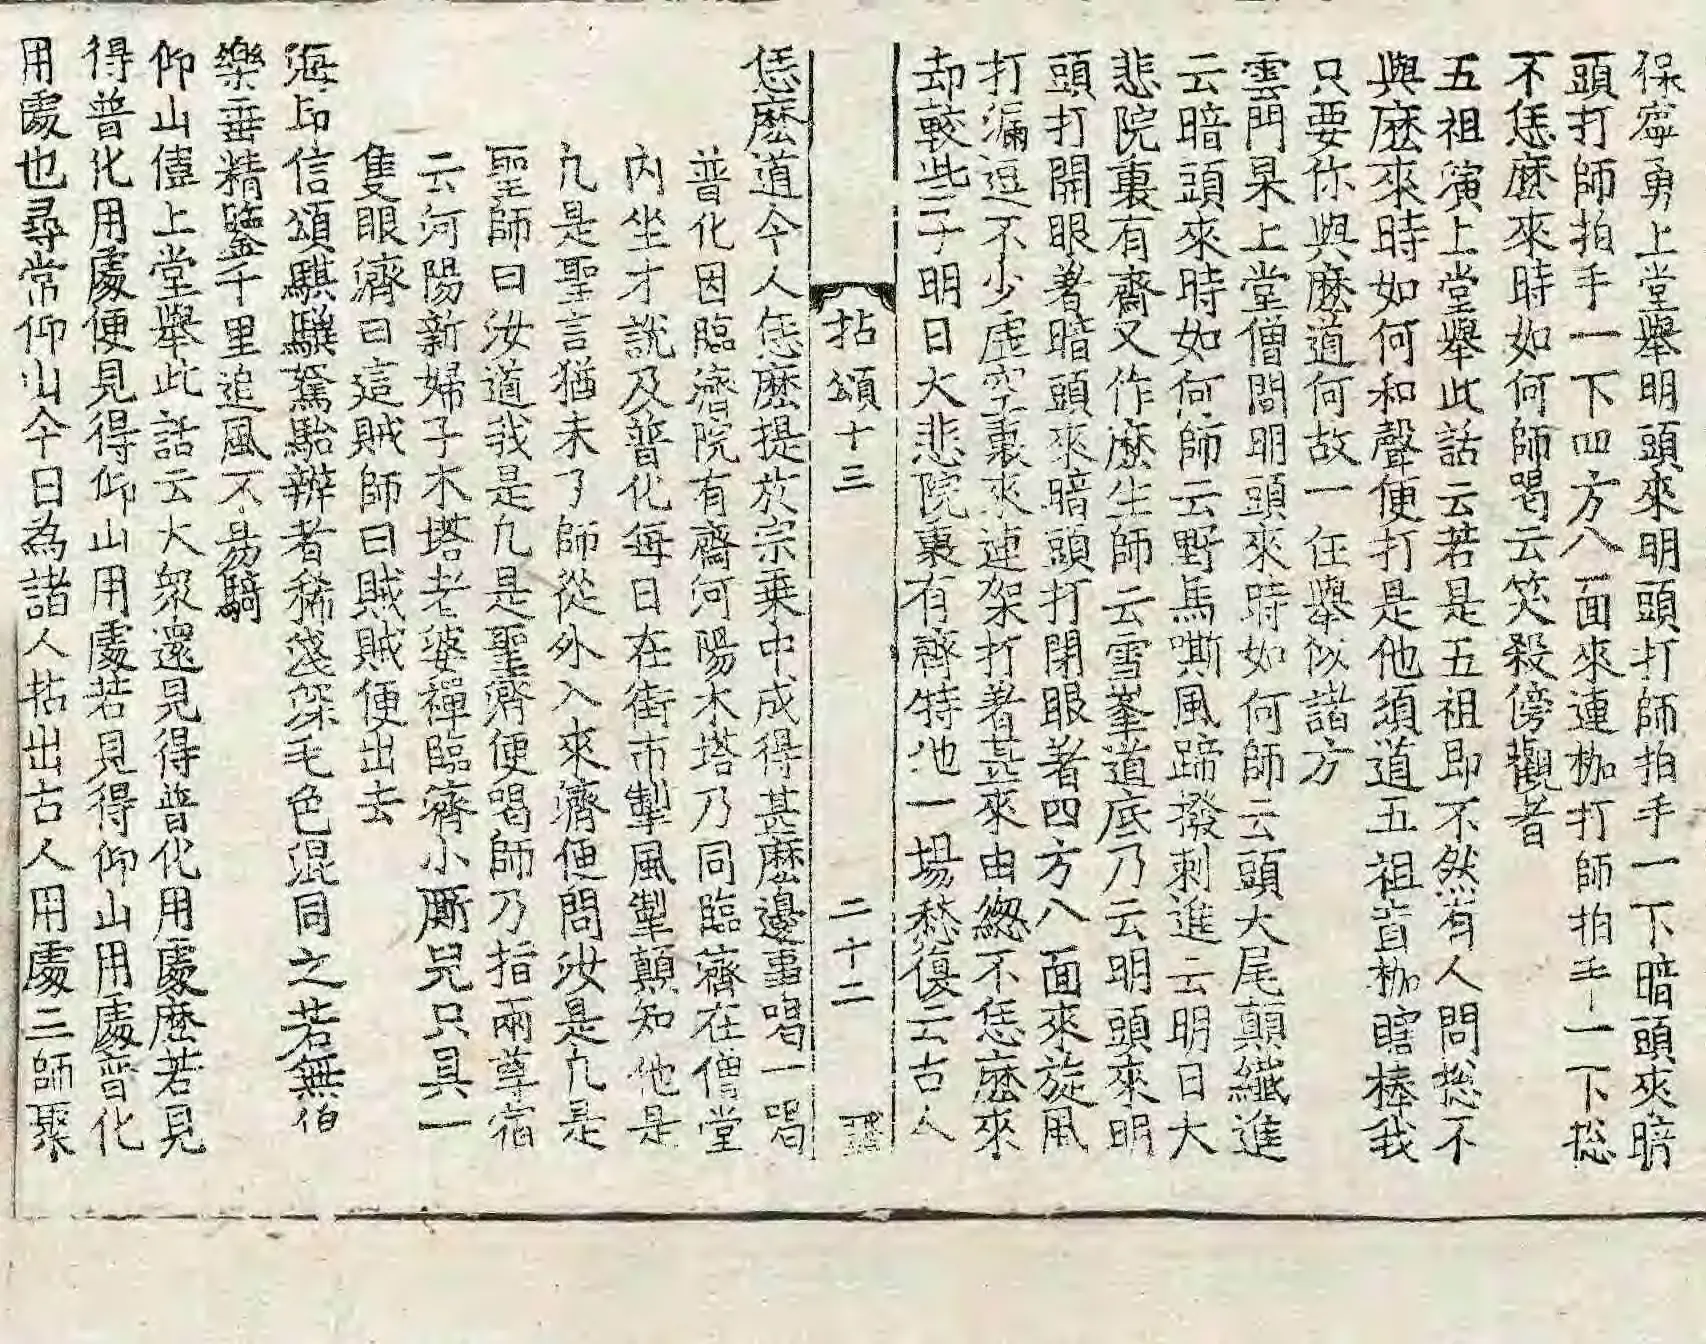 保寧勇上堂舉明頭來明頭打師拍手一下暗頭來暗
頭打師拍手一下四方八面來連枷打師拍手一下捴
不恁麽來時如何師喝云笑殺傍觀者
五祖演上堂舉此話云若是五祖即不然有人問捴不
與麽來時如何和聲便打是他須道五祖盲枷瞎棒我
只要你與麽道何故一任舉似諸方
雲門杲上堂僧問明頭來時如何師云頭大尾顛纖進
云暗頭來時如何師云野馬嘶風蹄撥刺進云明日大
悲院裏有齋又作麽生師云雪峯道底乃云明頭來明
頭打開眼著暗頭來暗頭打閉眼著四方八面來旋風
打漏逗不少虛空裏來連架打著甚來由緫不恁麽來
却較些子明日大悲院裏有齋特地一場愁復云古人
拈頌十三
二十二
恁麽道今人恁麽提於宗乗中成得甚麽邊事喝一喝
普化因臨濟院有齋河陽木塔乃同臨濟在僧堂
內坐才說及普化每日在街市掣風掣顛知他是
凢是聖言猶未了師從外入來濟便問汝是凢是
聖師曰汝道我是凢是聖濟便喝師乃指兩尊宿
云河陽新婦子木塔老婆禪臨濟小厮兒只具一
隻眼濟曰這賊師曰賊賊便出去
海印信頌騏驥駑駘辨者稀淺深毛色混同之若無伯
樂垂精鑒千里追風不易騎
仰山僼上堂舉此話云大衆還見得普化用處麽若見
得普化用處便見得仰山用處若見得仰山用處普化
用處也尋常仰山今日為諸人拈出古人用處三師聚